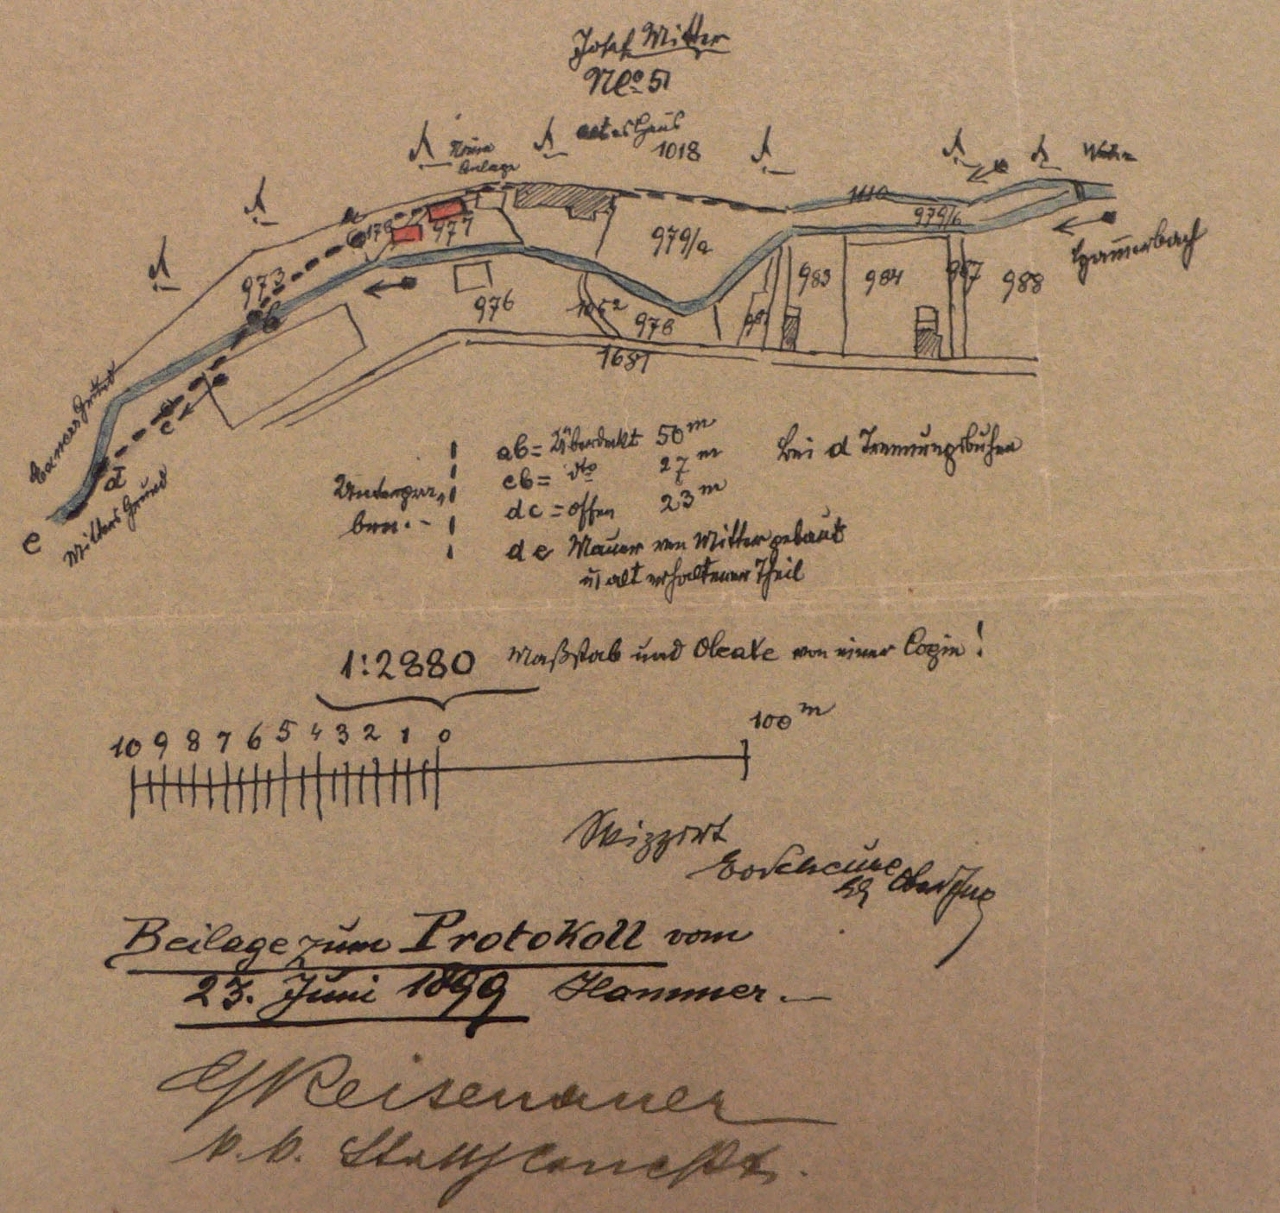 Josef Mitter
No 51
altes Haus
1018
Neue
Anlage
Wehr
1110
979/b
Hammerbach
977
979/a
973
976
978
983
984
987
988
1687
a
b
c
d
e
Mitters Grund
ab = Überdeckt 50 m
cb = dto 27 m
dc = offen 23 m
bei d Trennungsbuhne
de Mauer von Mitter gebaut
u. alt erhaltener Theil
1:2880 Maßstab und Oleate von einer Copie!
10 9 8 7 6 5 4 3 2 1 0
100 m
Skizzirt
Beilage zum Protokoll vom
23. Juni 1899 Hammer.
Reisenauer
k. k.